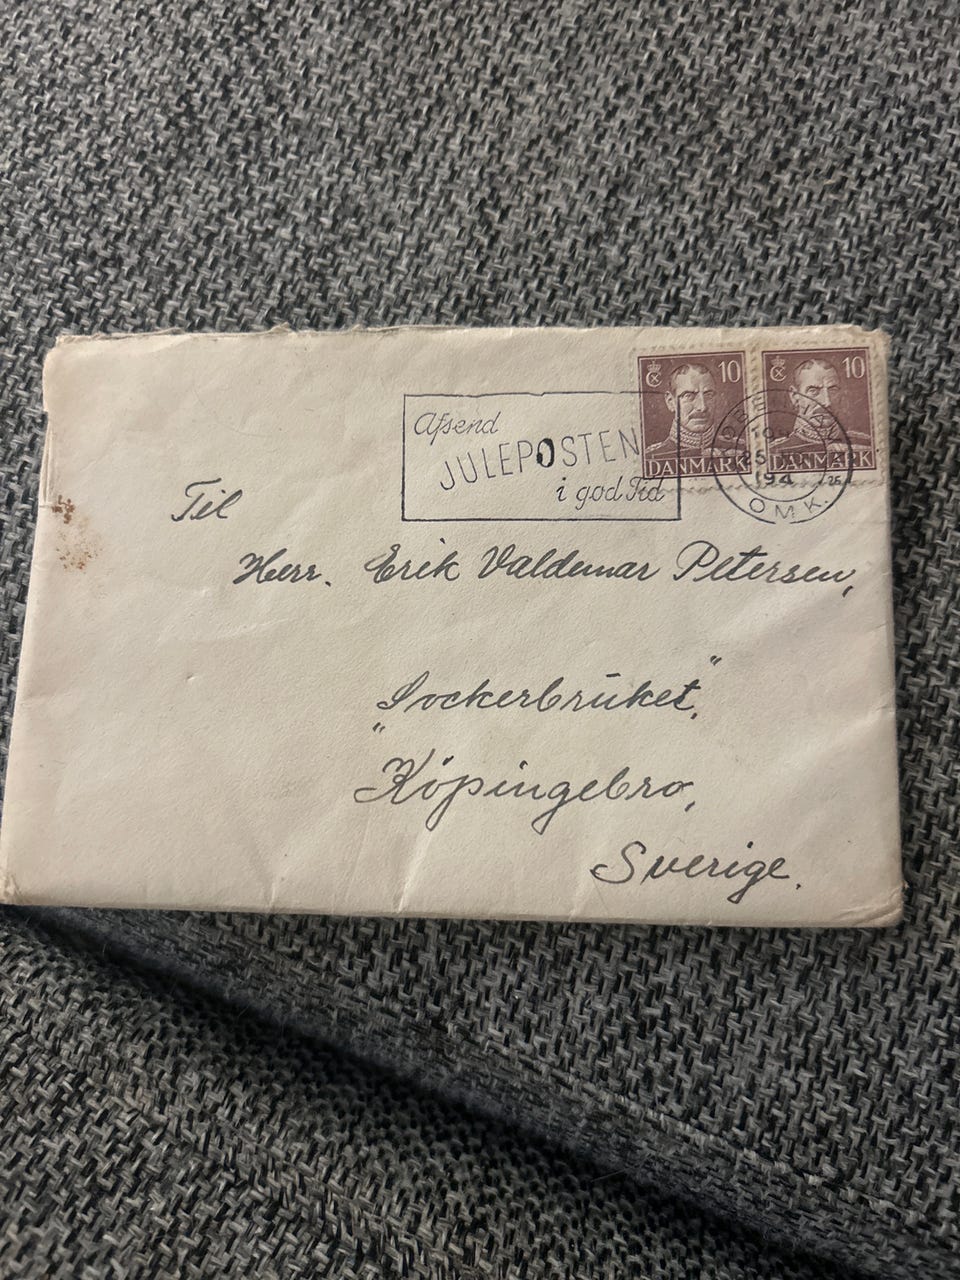 Afsend
JULEPOSTEN
i god Tid
10
DANMARK
10
DANMARK
KØBENHAVN
25
194
25
OMK.
Til
Herr. Erik Valdemar Petersen,
"Sockerbruket".
Köpingebro,
Sverige.